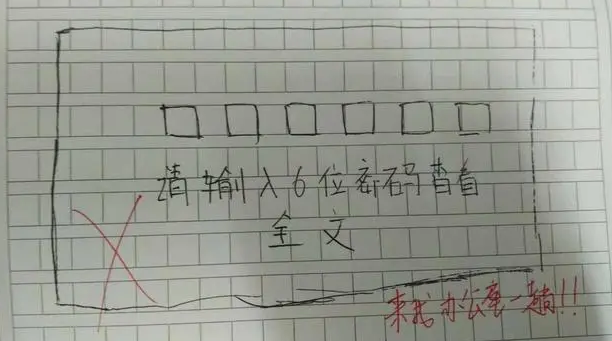 请输入6位密码查看
全文
来我办公室一趟!!